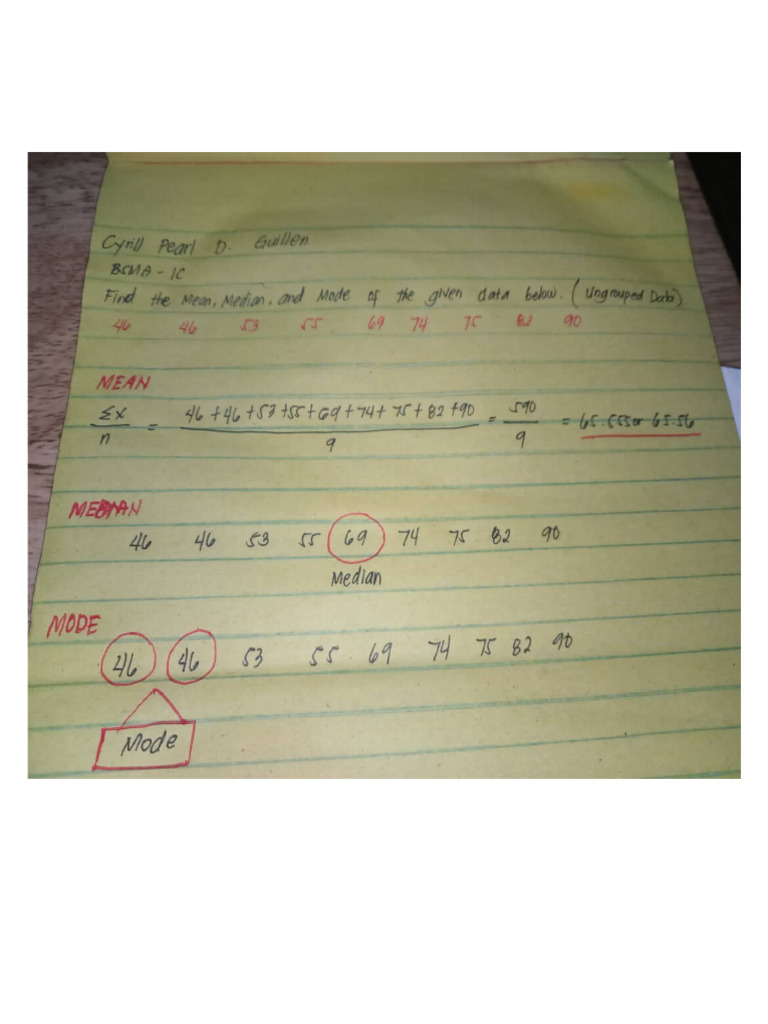 Cyrill Pearl D. Guillen
BSMA - 1C
Find the Mean, Median, and Mode of the given data below. (Ungrouped Data)
46 46 53 55 69 74 75 82 90
MEAN
Σx/n = 46+46+53+55+69+74+75+82+90/9 = 590/9 = 65.555 or 65.56
MEDIAN
46 46 53 55 69 74 75 82 90
Median
MODE
46 46 53 55 69 74 75 82 90
Mode